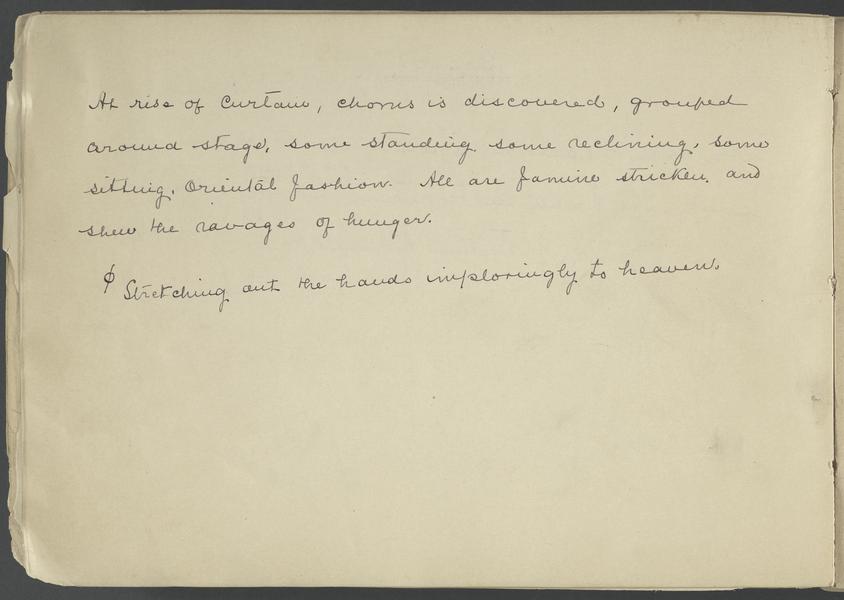 At rise of Curtain, chorus is discovered, grouped
around stage, some standing, some reclining, some
sitting, Oriental fashion. All are famine stricken, and
shew the ravages of hunger.
φ Stretching out the hands imploringly to heaven.